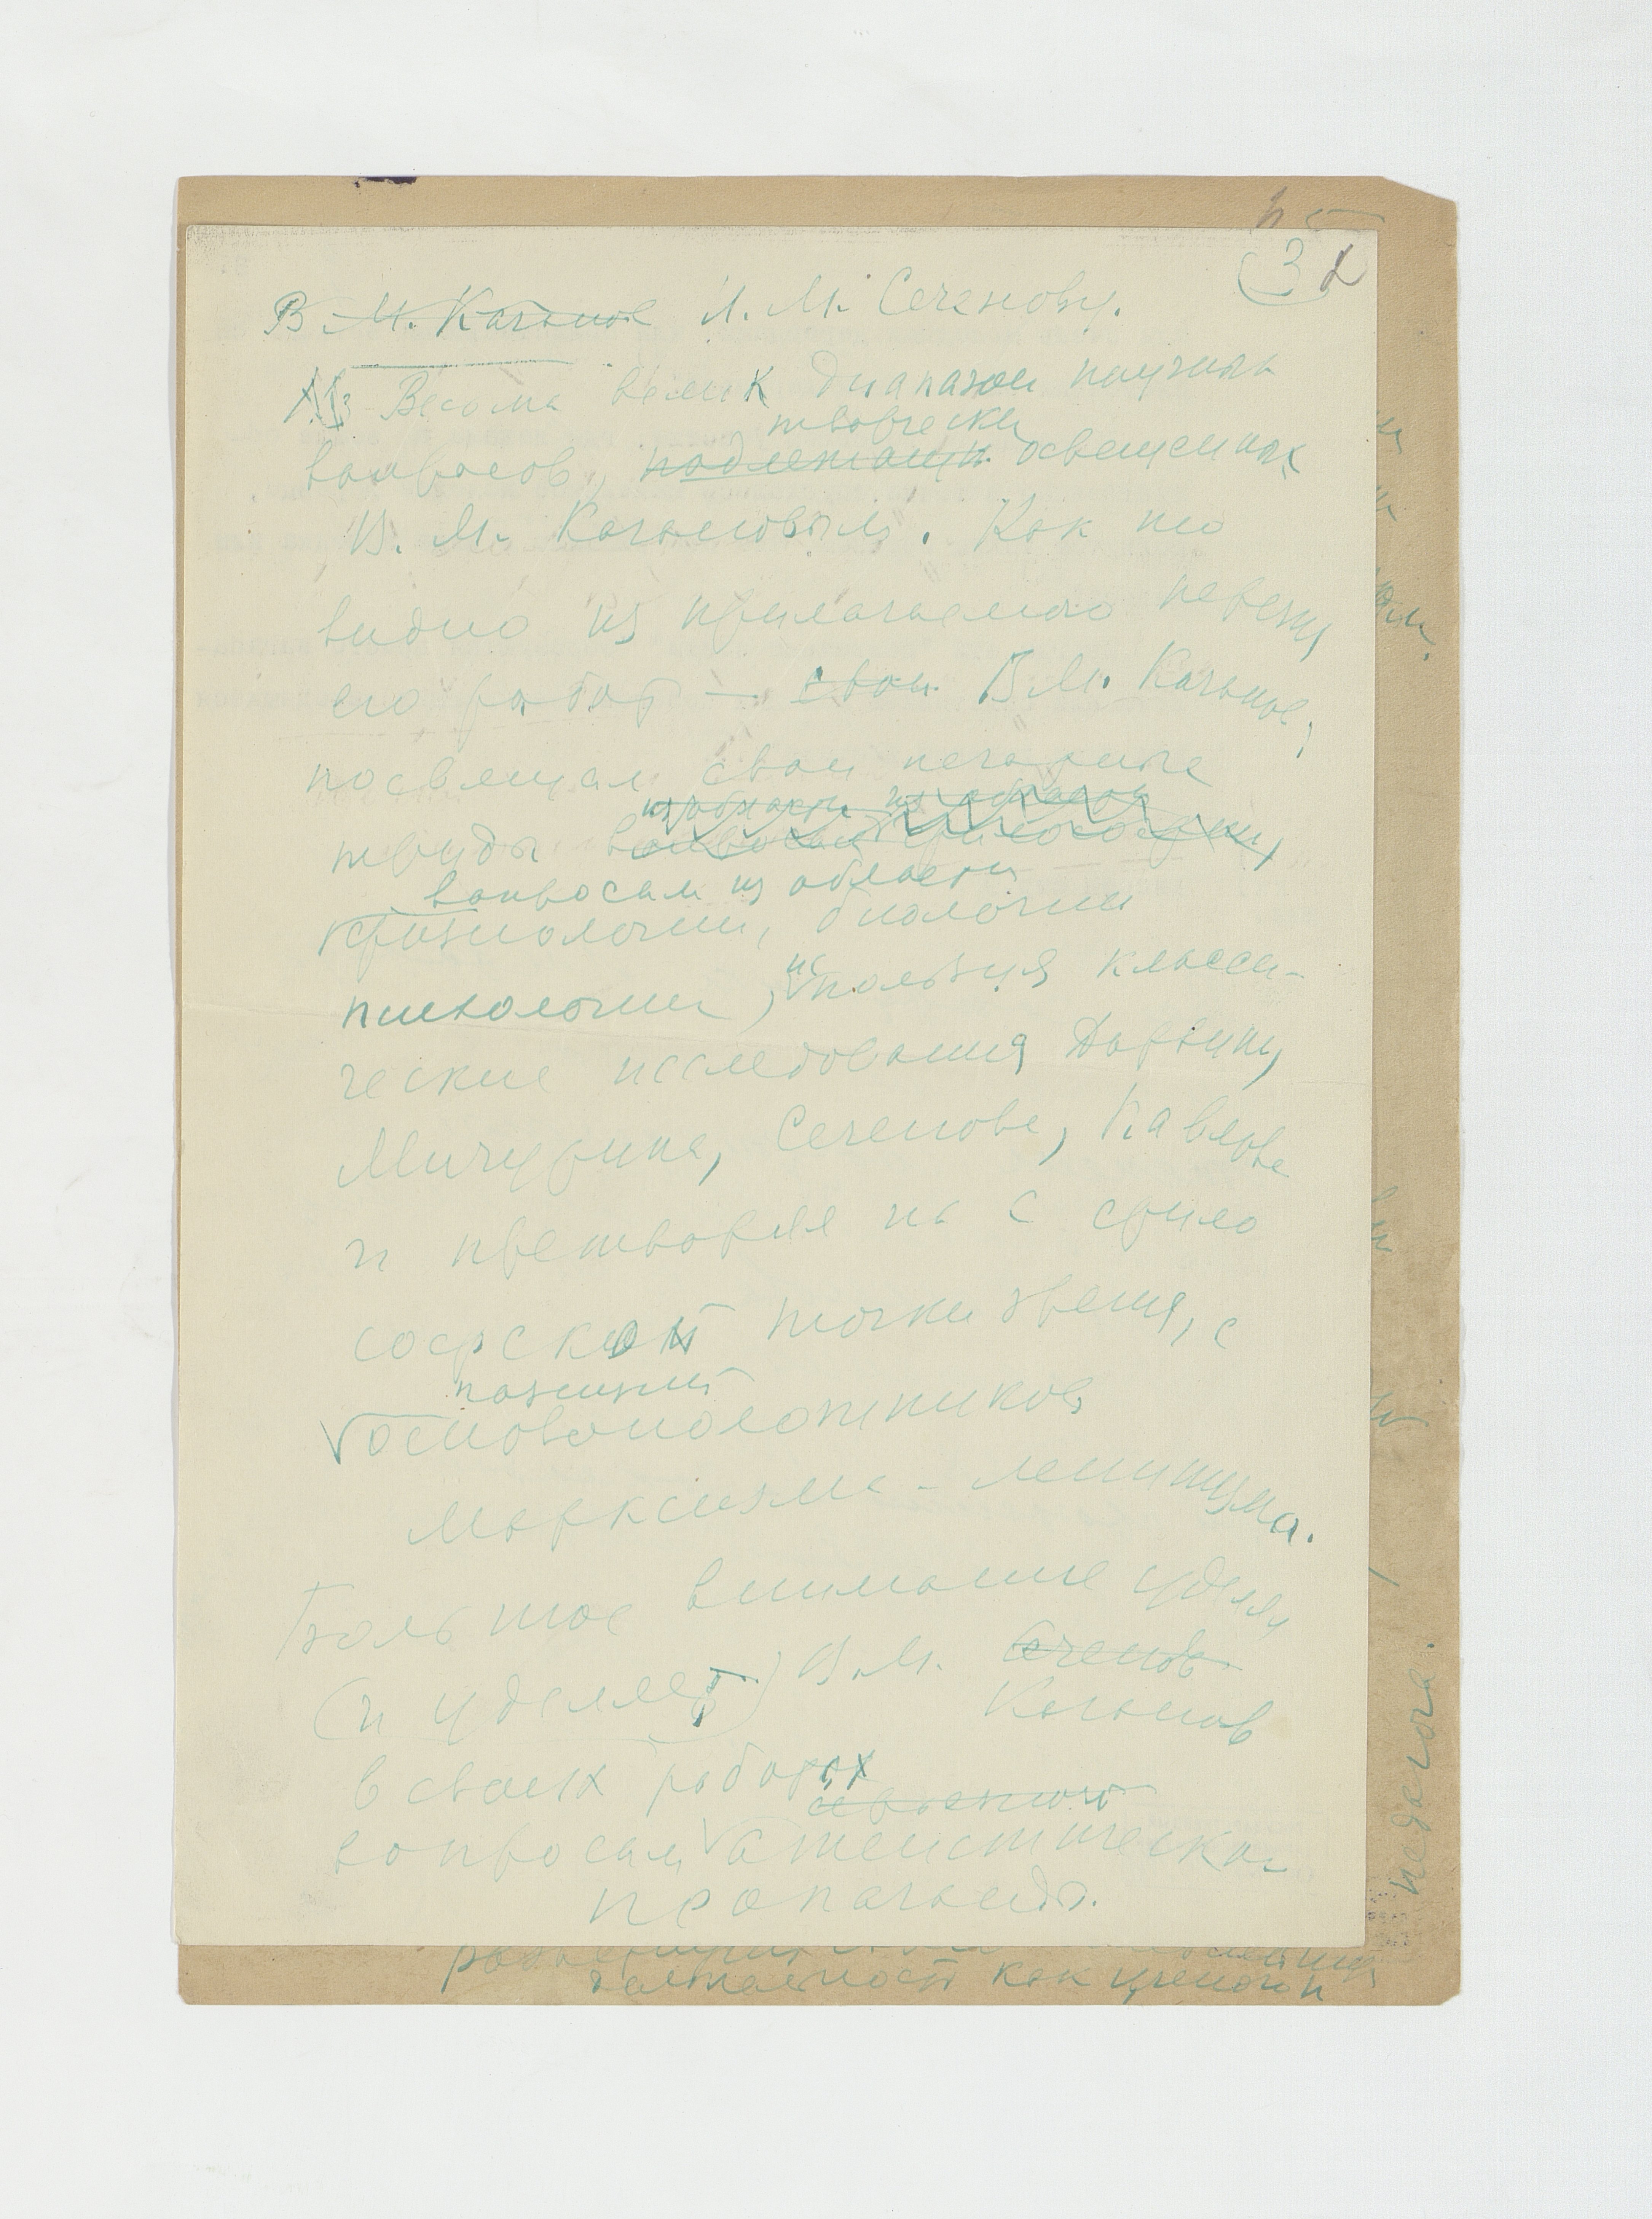 3
В. М. Каганов И. М. Сеченову.
Весьма велик диапазон научных
творчески
вопросов, подлежащих освещенных
В. М. Кагановым. Как это
видно из прилагаемого перечня
его работ — свои В. М. Каганов,
посвящал свои печатные
из области
труды вопросам философии,
вопросам из области
физиологии, биологии
ис
психологии, пользуя класси-
ческие исследования Дарвина,
Мичурина, Сеченова, Павлова
и претворяя их с фило
софской точки зрения, с
позиций
основоположников
Марксизма-ленинизма.
Большое внимание уделял
(и уделяет) В. М. Сеченов
Каганов
в своих работах
вопросам атеистической
пропаганды.
как ученого и
педагога.